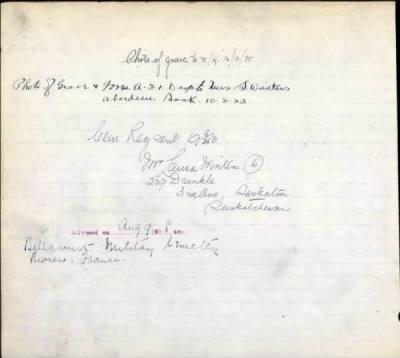 Photo of grave to n/k 16/2/20
Photo of Grave & Form A.21 Desp to Mrs S. Winters
Aberdeen Sask. 10-2-23
Cem Reg send
Mrs Laura Winters (W)
209 Drinkle
3rd Ave Saskatoon
Saskatchewan
Aug 9
Bellacourt Military Cemetery
Riviere, France.